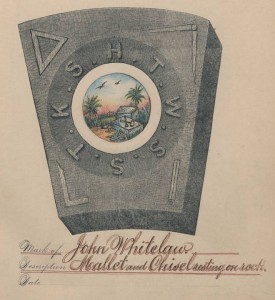 H T W S S T K S
Mark of John Whitelaw
Description Mallet and Chisel resting on rock.
Date